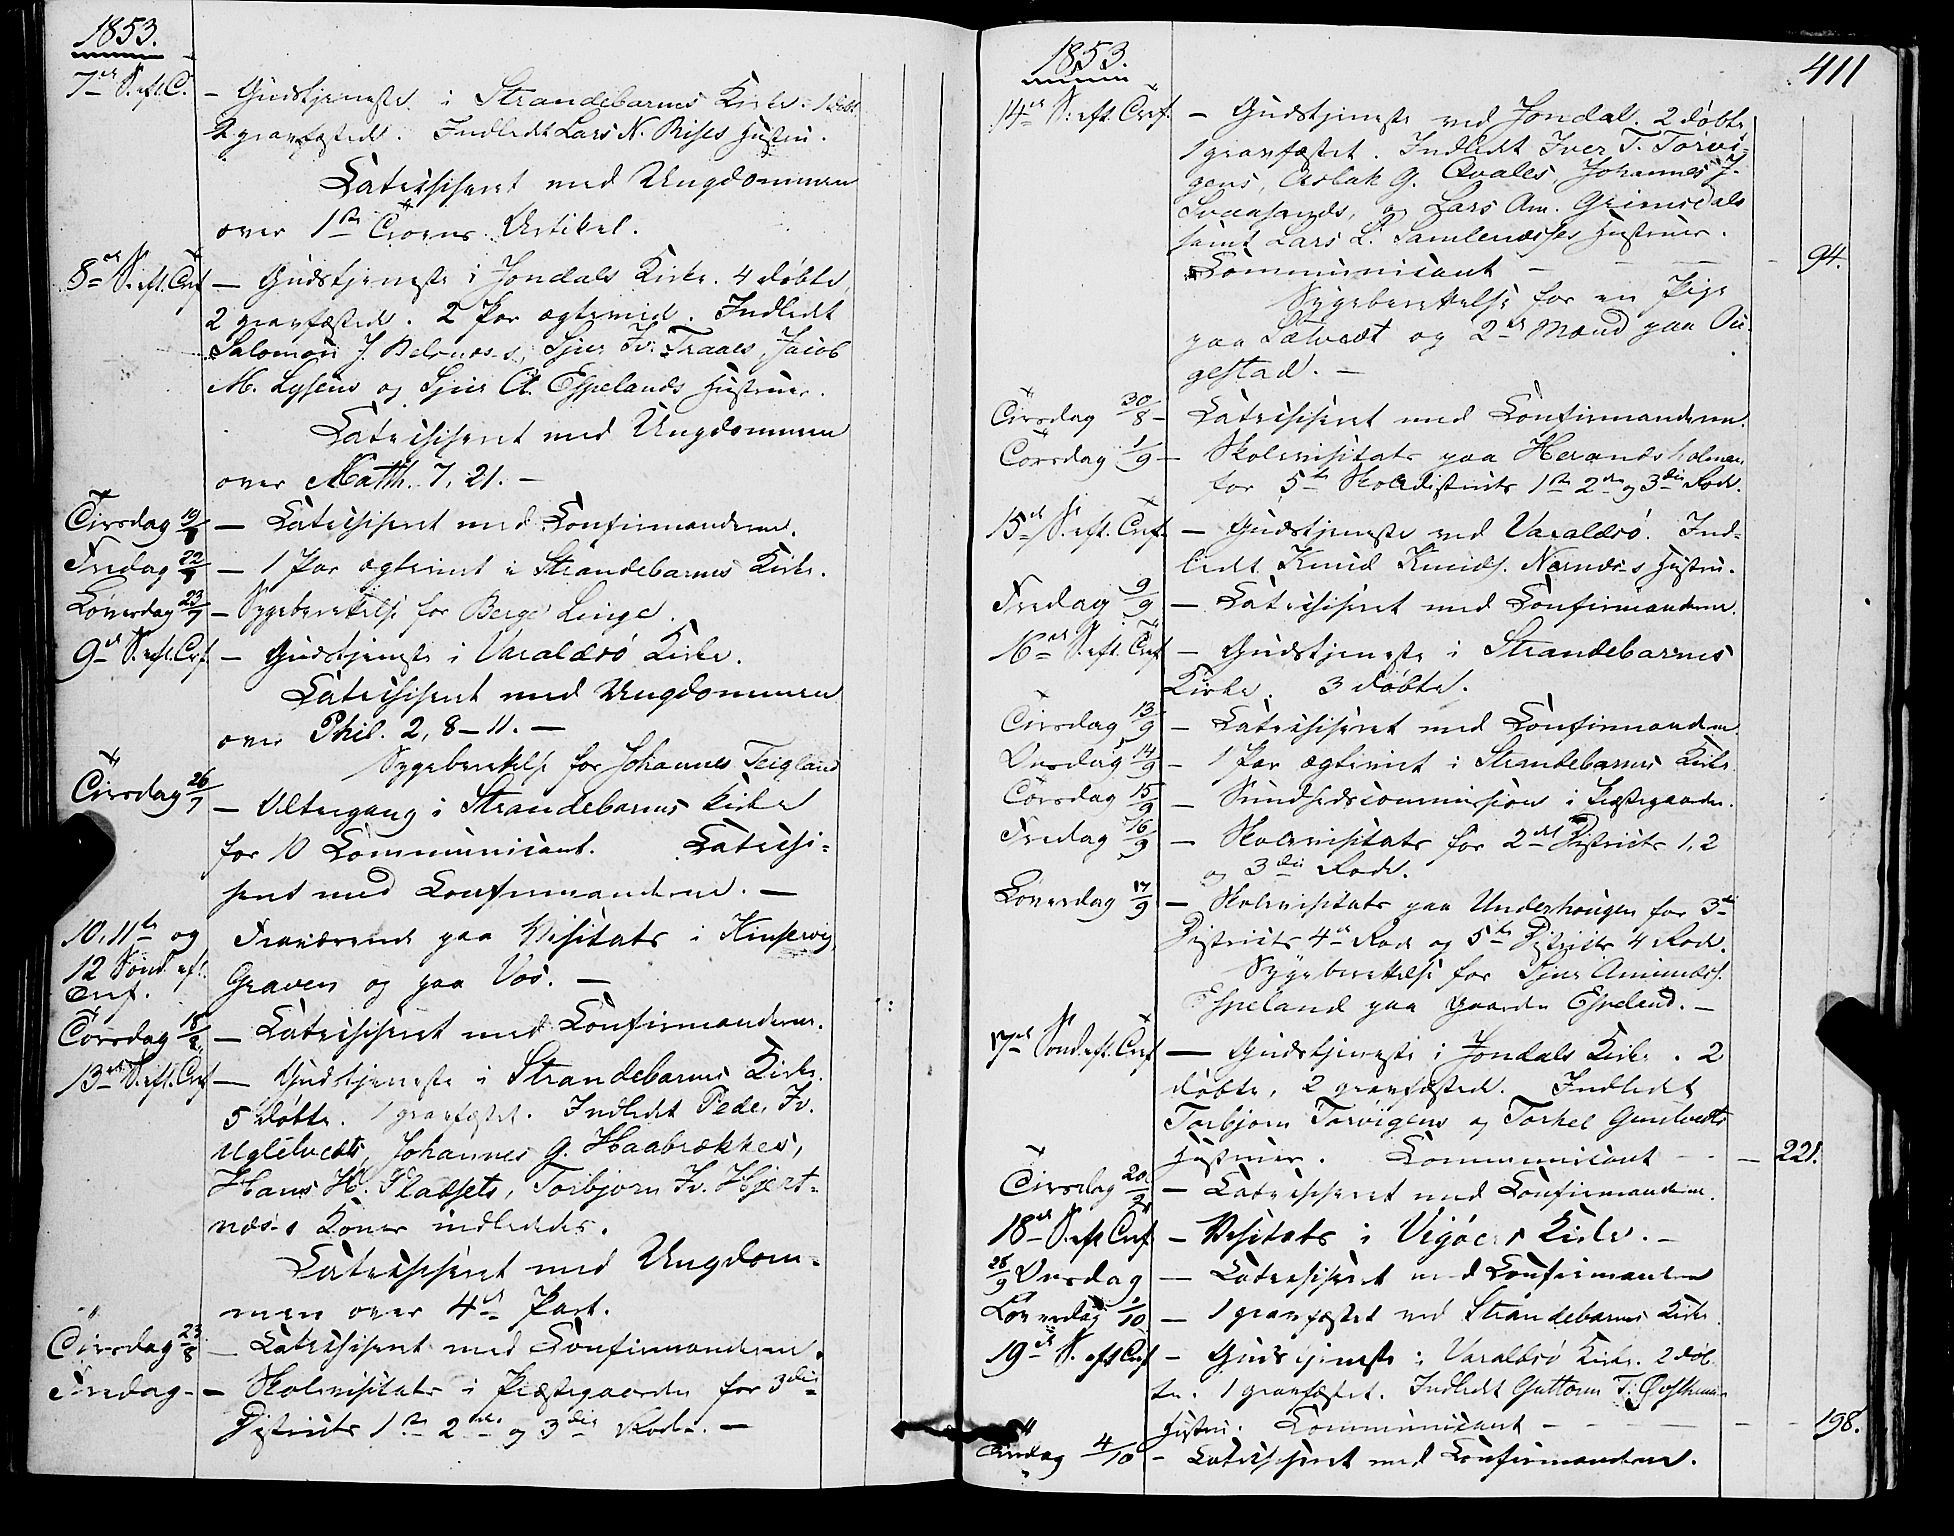 1853.
7de S. eft. C. - Gudstjeneste i Strandebarms Kirke. 1 døbt.
2 gravfæstede. Indledt Lars N. Rises Hustru.
Catechiseret med Ungdommen
over 1ste Troens Artikel.
8de S. eft. Tref - Gudstjeneste i Jondals Kirke. 4 døbte,
2 gravfæstede. 2 Par ægteviede. Indledt
Salomon J. Belsnæs, Sjur Iv. Traaes, Jacob
M. Lysens og Sjur A. Espelands Hustruer.
Catechiseret med Ungdommen
over Matth. 7, 21. -
Tirsdag 19/7 - Catechiseret med Confirmanderne.
Fredag 22/7 - 1 Par ægteviet i Strandebarms Kirke.
Løverdag 23/7 - Sygeberettelse for Berge Linge.
9de S. eft. Tref. - Gudstjeneste i Varaldsö Kirke.
Catechiseret med Ungdommen
over Phil. 2, 8-11. -
Sygeberettelse for Johannes Teigland
Tirsdag 26/7 - Altergang i Strandebarms Kirke
for 10 Communicant. Catechi-
seret med Confirmanderne. -
10, 11te og Fraværende paa Visitats i Kinservig
12 Sönd. eft. Graven og paa Vos. -
Tref.
Torsdag 18/8 - Catechiseret med Confirmanderne.
13de S. eft. Tref - Gudstjeneste i Strandebarms Kirke.
5 døbte. 1 gravfæstet. Indledt Peder Iv.
Uglelvedts, Johannes G. Haabrækkes,
Hans H. Pladsets, Torbjørn Iv. Hjert-
næs's Koner indledede.
Catechiseret med Ungdom-
men over 4de Part.
Tirsdag 23/8 - Catechiseret med Confirmanderne.
Fredag - - Skolevisitats i Præstegaarden for 3die
Districts 1ste 2den og 3die Rode. -
1853.
411
14de S. eft. Tref. - Gudstjeneste ved Jondal. 2 døbte
1 gravfæstet. Indledt Iver T. Torvi-
gens, Aslak G. Qvales, Johannes J.
Svaasands, og Lars Am. Grimsdals
samt Lars L. Samlenæsses Hustruer.
Communicant - - - - 94.
Sygeberettelse for en Pige
paa Sætvedt og 2de Mænd paa Au-
gestad. -
Tirsdag 30/8 - Catechiseret med Confirmanderne.
Torsdag 1/9 - Skolevisitats paa Herandsholmen
for 5te Skoledistricts 1ste 2den og 3die Rode.
15de S. eft. Tref. - Gudstjeneste ved Varaldsö. Ind-
ledt Knud Knuds. Nernæs's Hustru.
Fredag 9/9 - Catechiseret med Confirmanderne.
16de S. eft. Tref - Gudstjeneste i Strandebarms
Kirke. 3 døbte.
Tirsdag 13/9 - Catechiseret med Confirmanderne
Onsdag 14/9 - 1 Par ægteviet i Strandebarms Kirke
Torsdag 15/9 - Sundhedscommission i Præstegaarden.
Fredag 16/9 - Skolevisitats for 2det Districts 1, 2
og 3die Rode.
Løverdag 17/9 - Skolevisitats paa Underhougen for 3die
Districts 4de Rode og 5te Districts 4 Rode.
Sygeberettelse for Sjur Amundss.
Espeland paa Gaarden Espeland. -
17de Sönd. eft. Tref - Gudstjeneste i Jondals Kirke. 2
døbte, 2 gravfæstede. Indledt
Torbjørn Torvigens og Torkel
Hustruer. Communicant - - - 221.
Tirsdag 20/9 - Catechiseret med Confirmanderne.
18de S. eft Tref. - Visitats i Vigöers Kirke. -
28/9 Onsdag - Catechiseret med Confirmanderne
Løverdag 1/10 - 1 gravfæstet ved Strandebarms Kirke
19de S. eft Tref - Gudstjeneste i Varaldsö Kirke. 2 döb-
te. 1 gravfæstet. Indledt Guttorm T.
Hustru. Communicant - - - - 198.
Tirsdag 4/10 - Catechiseret med Confirmanderne.